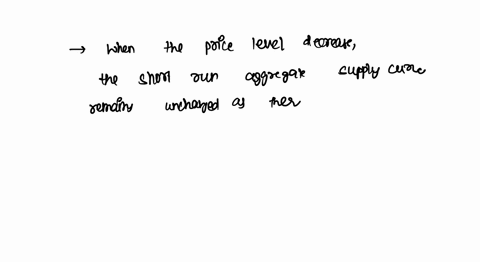 → When the price level decrease,
the short run aggregate supply curve
remains unchanged as ther